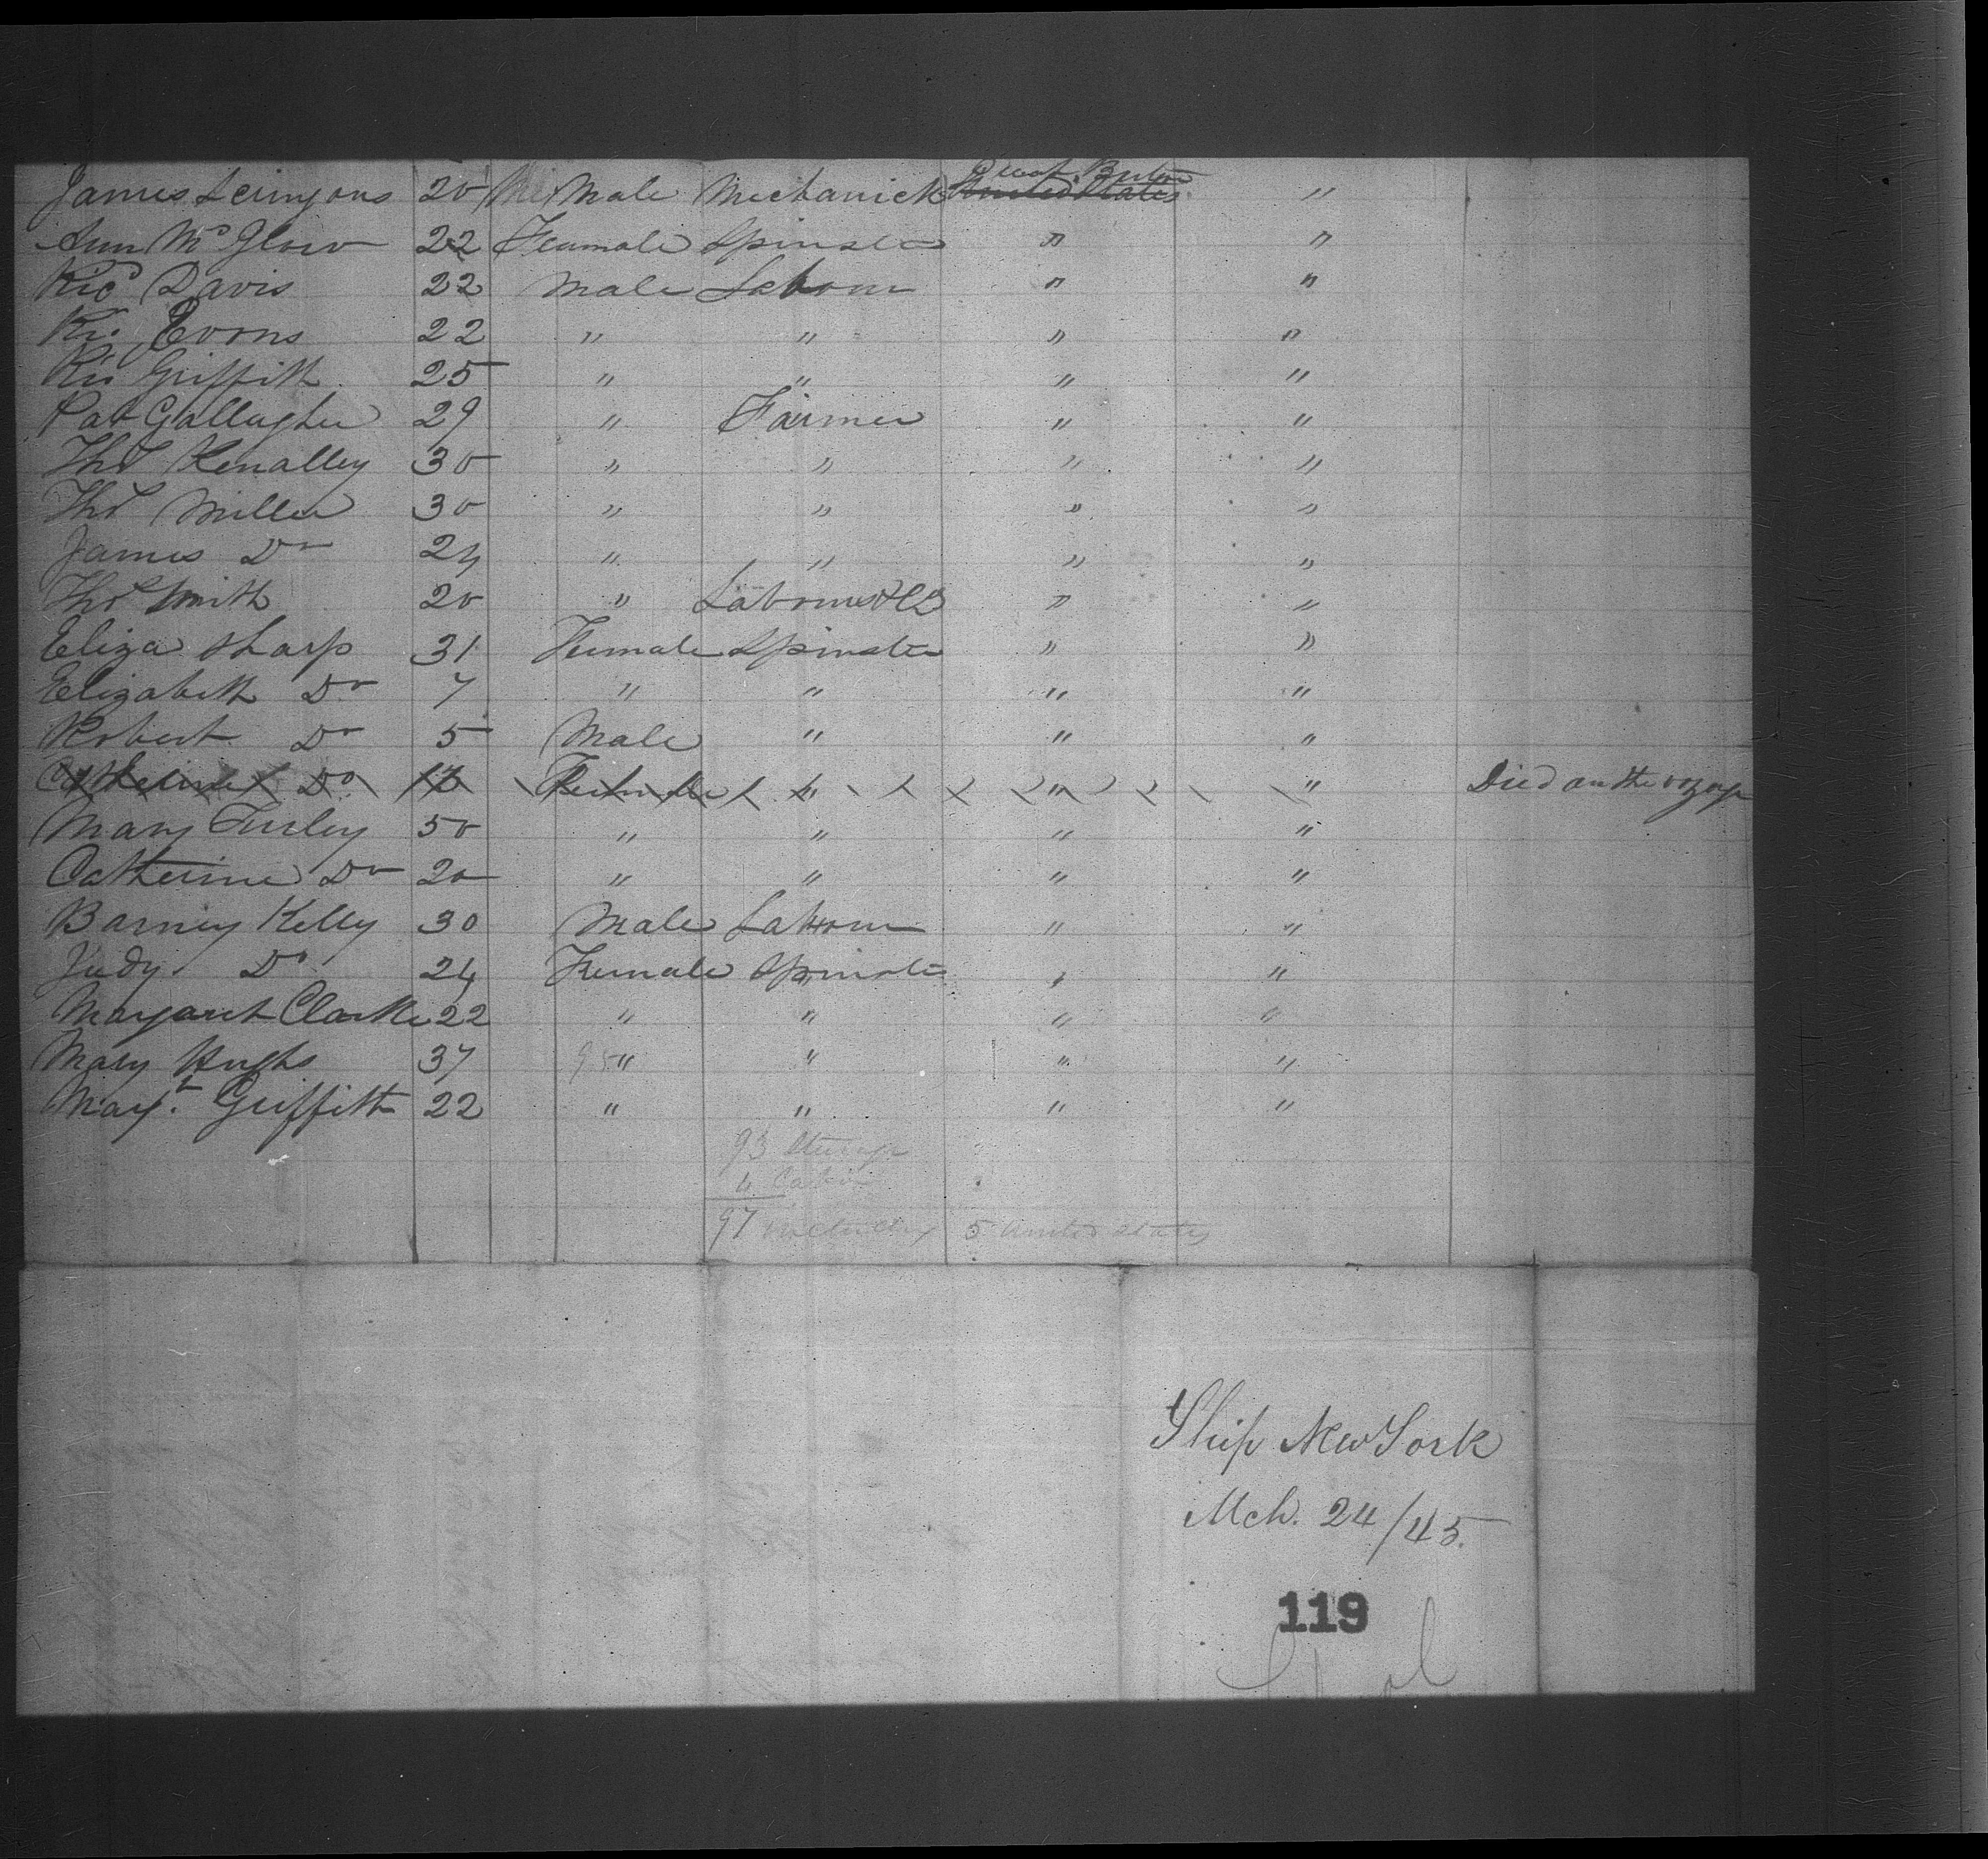 James 20 Male Mechanick Great Britain ~~United States~~ "
Ann McGlow 22 Feamale Spinster " "
Ricd Davis 22 Male Labour " "
Ri. Evons 22 " " " "
Ri Griffith 25 " " " "
Pat Gallagher 29 " Farmer " "
Thos Kenalley 30 " " " "
Thos Miller 30 " " " "
James Do 24 " " " "
Thos Smith 20 " " "
Eliza Sharp 31 Female Spinster " "
Elizabeth Do 7 " " " "
Robert Do 5 Male " " "
~~Catherine Do~~ ~~Female~~ " " " Died on the voyage
Mary Furley 50 " " " "
Catherine Do 20 " " " "
Barney Kelly 30 Male Labour " "
Judy Do 24 Female Spinster " "
Margaret Clarke 22 " " " "
Mary Hughs 37 95 " " " "
Marg.t Griffith 22 " " " "
93 Steerage
4 Cabin
97 including 5 United States
Ship New York
Mch. 24/45.
119